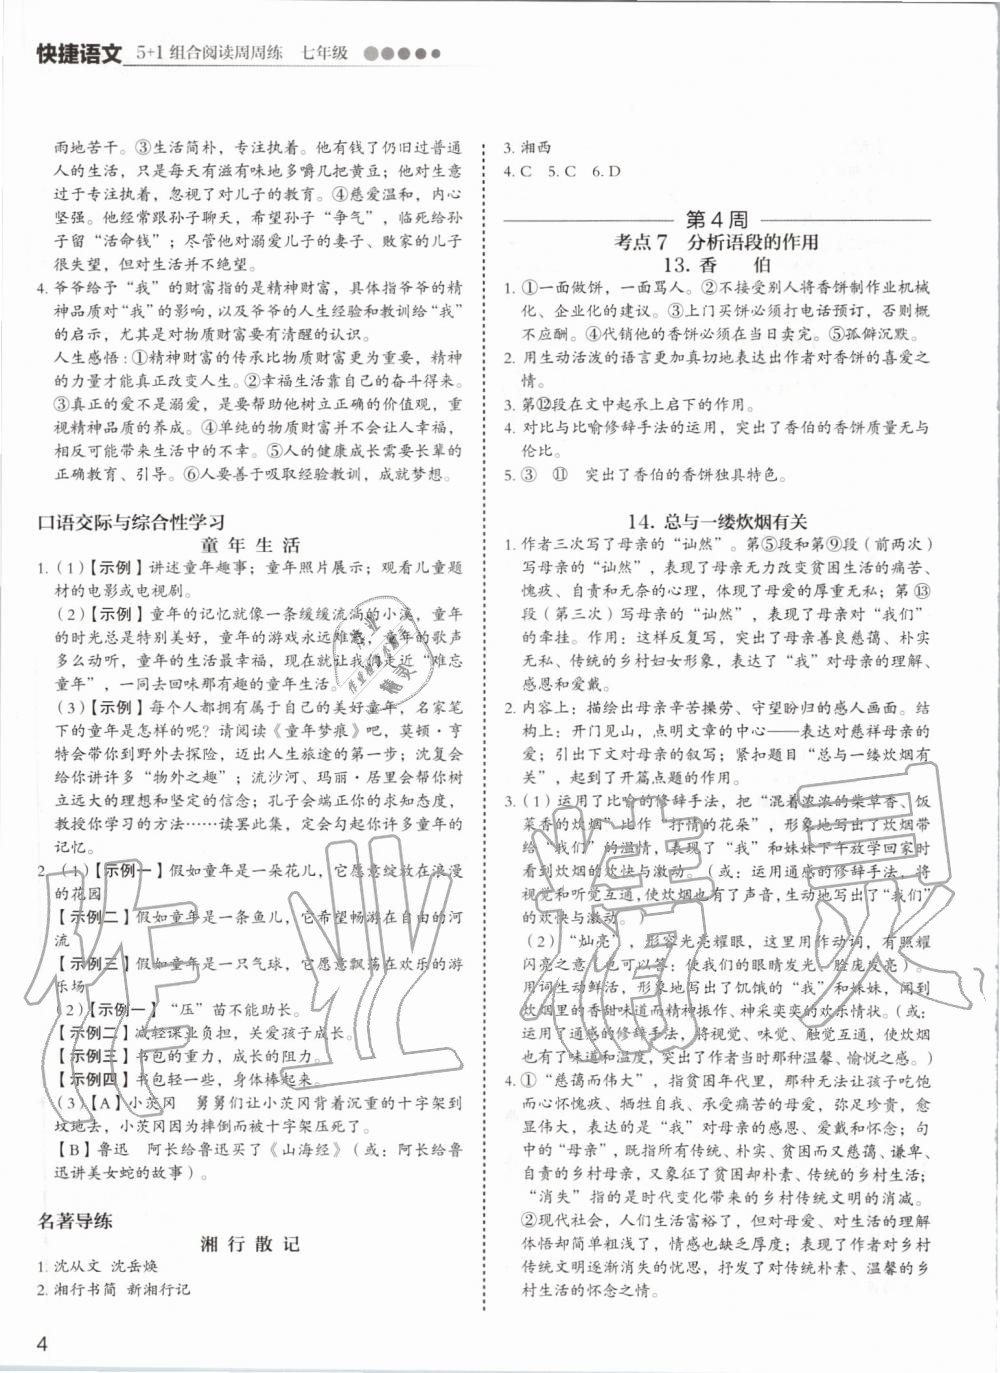 快捷语文 5+1组合阅读周周练 七年级
雨地苦干。③生活简朴，专注执着。他有钱了仍旧过普通
人的生活，只是每天有滋有味地多嚼几把黄豆；他对生意
过于专注执着，忽视了对儿子的教育。④慈爱温和，内心
坚强。他经常跟孙子聊天，希望孙子“争气”，临死给孙
子留“活命钱”；尽管他对溺爱儿子的妻子、败家的儿子
很失望，但并不严厉地指责。
4. 爷爷给予“我”的财富指的是精神财富，具体指爷爷的精
神品质对“我”的影响，以及爷爷的人生经验和教训给“我”
的启示，尤其是对物质财富要有清醒的认识。
人生感悟：①精神财富的传承比物质财富更为重要，精神
的力量才能真正改变人生。②幸福生活靠自己的奋斗得来。
③真正的爱不是溺爱，是要帮助他树立正确的价值观，重
视精神品质的养成。④单纯的物质财富并不会让人幸福，
却能带来生活中的不幸。⑤人的健康成长需要长辈的
正确教育、引导。⑥人要善于吸取经验教训，成就梦想。
口语交际与综合性学习
童年生活
1.（1）【示例】讲述童年趣事；童年照片展示；观看儿童题
材的电影或电视剧。
（2）【示例】童年的记忆就像一条缓缓流淌的小溪，童年
的时光总是特别美好，童年的游戏永远难忘，童年的歌声
多么动听，童年的生活最幸福，现在就让我们走近“难忘
童年”，一同去回味那有趣的童年生活。
（3）【示例】每个人都拥有属于自己的美好童年，名家笔
下的童年是怎样的呢？请阅读《童年梦痕》吧，莫顿·亨
特会带你到野外去探险，迈出人生旅途的第一步；沈复会
给你讲许多“物外之趣”；流沙河、玛丽·居里会帮你树
立远大的理想和坚定的信念；孔子会端正你的求知态度，
教授你学习的方法……读罢此集，定会勾起你许多童年的
记忆。
2.（1）【示例一】假如童年是一朵花儿，它愿意绽放在浪漫
的花园
【示例二】假如童年是一条鱼儿，它希望畅游在自由的河
流
【示例三】假如童年是一只气球，它愿意飘荡在欢乐的游
乐场
（2）【示例一】“压”苗不能助长。
【示例二】减轻课业负担，关爱孩子成长。
【示例三】书包的重力，成长的阻力。
【示例四】书包轻一些，身体棒起来。
（3）【A】小茨冈 舅舅们让小茨冈背着沉重的十字架到
坟地去，小茨冈因为摔倒而被十字架压死了。
【B】鲁迅 阿长给鲁迅买了《山海经》（或：阿长给鲁
迅讲美女蛇的故事）。
名著导练
湘行散记
1. 沈从文 沈岳焕
2. 湘行书简 新湘行记
3. 湘西
4. C 5. C 6. D
第4周
考点7 分析语段的作用
13. 香 伯
1. ①一面做饼，一面骂人。②不接受别人将香饼制作业机械
化、企业化的建议。③上门买饼必须打电话预订，否则概
不应酬。④代销他的香饼必须在当日卖完。⑤孤僻沉默。
2. 用生动活泼的语言更加真切地表达出作者对香饼的喜爱之
情。
3. 第⑫段在文中起承上启下的作用。
4. 对比与比喻修辞手法的运用，突出了香伯的香饼质量无与
伦比。
5. ③ ⑪ 突出了香伯的香饼独具特色。
14. 总与一缕炊烟有关
1. 作者三次写了母亲的“讪然”。第⑤段和第⑨段（前两次）
写母亲的“讪然”，表现了母亲无力改变贫困生活的痛苦、
愧疚、自责和无奈的心理，体现了母爱的厚重无私；第⑬
段（第三次）写母亲的“讪然”，表现了母亲对“我们”
的牵挂。作用：这样反复写，突出了母亲善良慈蔼、朴实
无私、传统的乡村妇女形象，表达了“我”对母亲的理解、
感恩和爱戴。
2. 内容上：描绘出母亲辛苦操劳、守望盼归的感人画面。结
构上：开门见山，点明文章的中心——表达对慈祥母亲的
爱；引出下文对母亲的叙写；紧扣题目“总与一缕炊烟有
关”，起到了开篇点题的作用。
3.（1）运用了比喻的修辞手法，把“混着浓浓的柴草香、饭
菜香的炊烟”比作“抒情的花朵”，形象地写出了炊烟带
给“我们”的温情，表现了“我”和妹妹下午放学回家时
看到炊烟的欢快与激动。（或：运用通感的修辞手法，将
视觉和听觉互通，使炊烟也有了声音，生动地写出了“我们”
的欢快与激动。）
（2）“灿亮”，形容光亮耀眼，这里用作动词，有照耀
闪亮之意（也可以答：使我们的眼睛发光、脸庞发亮）。
用词生动鲜活，形象地写出了饥饿的“我”和妹妹，闻到
炊烟里的香甜味道而精神振作、神采奕奕的欢乐情状。（或：
运用了通感的修辞手法，将视觉、味觉、触觉互通，使炊烟
也有了味道和温度，突出了作者当时那种温馨、愉悦之感。）
4. ①“慈蔼而伟大”，指贫困年代里，那种无法让孩子吃饱
而心怀愧疚、牺牲自我、承受艰辛的母爱，弥足珍贵，愈
显伟大，表达的是“我”对母亲的感恩、爱戴和忆念；句
中的“母亲”，既突出了“我”的那位贫困而又慈蔼、谦卑、
自责的乡村母亲，又象征了贫困却朴素、温馨的乡村生活；
“消失”指的是时代变化带来的乡村传统文明的消减。
②现代社会，人们生活富裕了，但对母爱、对生活的理解
体悟却简单粗浅了，情感也缺乏厚度；表现了作者对乡村
传统文明逐渐消失的忧思，抒发了对传统朴素、温馨的乡
村生活的怀念之情。
4
作业
作业检查小助手
精灵
作业精灵